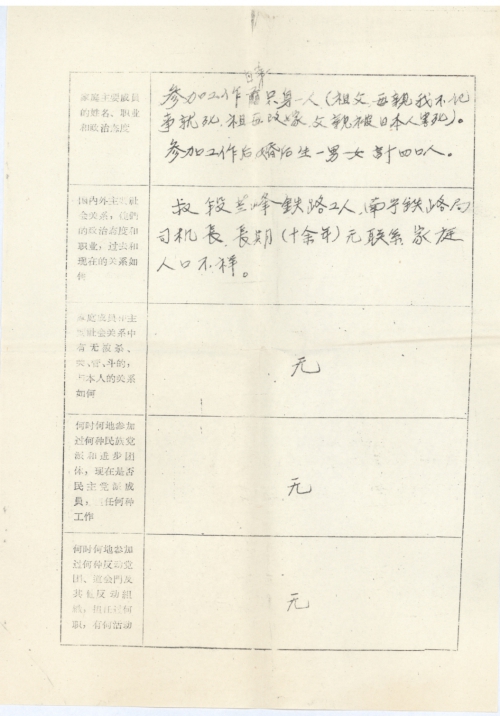 家庭主要成員
的姓名、职业
和政治态度
参加工作前只身一人(祖父、母親我不记
事就死,祖母改嫁,父親被日本人害死)。
参加工作后婚后生一男一女計四口人。
国内外主要社
会关系,他們
的政治态度和
职业,过去和
现在的关系如
何
叔段兰峰铁路工人,南宁鉄路局
司机長,長期(十余年)无联系家庭
人口不祥。
家庭成員和主
要社会关系中
有无被杀、
关、管、斗的,
与本人的关系
如何
无
何时何地参加
过何种民族党
派和进步团
体,现在是否
民主党派成
員,担任何种
工作
无
何时何地参加
过何种反动党
团、道会門及
其他反动組
織,担任过何
职,有何活动
无